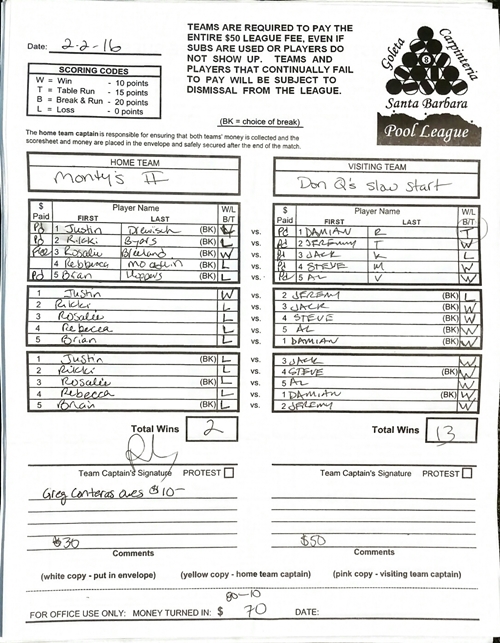 Date: 2-2-16
SCORING CODES
W = Win - 10 points
T = Table Run - 15 points
B = Break & Run - 20 points
L = Loss - 0 points
TEAMS ARE REQUIRED TO PAY THE
ENTIRE $50 LEAGUE FEE, EVEN IF
SUBS ARE USED OR PLAYERS DO
NOT SHOW UP. TEAMS AND
PLAYERS THAT CONTINUALLY FAIL
TO PAY WILL BE SUBJECT TO
DISMISSAL FROM THE LEAGUE.
(BK = choice of break)
Goleta
Carpinteria
8
Santa Barbara
Pool League
The home team captain is responsible for ensuring that both teams' money is collected and the
scoresheet and money are placed in the envelope and safely secured after the end of the match.
HOME TEAM
Monty's II
VISITING TEAM
Don Q's Slow Start
$ Paid Player Name FIRST LAST W/L B/T
$ Paid Player Name FIRST LAST W/L B/T
Pd 1 Justin (BK) vs. Pd 1 DAMIAN R T
Pd 2 Rikki Byors (BK) L vs. Pd 2 JEREMY T W
3 Rosalie (BK) W vs. Pd 3 JACK K L
4 Rebbecca L vs. Pd 4 STEVE M W
Pd 5 Brian (BK) L vs. Pd 5 AL V W
1 Justin W vs. 2 JEREMY (BK) L
2 Rikki L vs. 3 JACK (BK) W
3 Rosalie L vs. 4 STEVE (BK) W
4 Rebecca L vs. 5 AL (BK) W
5 Brian L vs. 1 DAMIAN (BK) W
1 Justin (BK) L vs. 3 JACK W
2 Rikki L vs. 4 STEVE (BK) W
3 Rosalie (BK) L vs. 5 AL W
4 Rebecca L vs. 1 DAMIAN (BK) W
5 Brian (BK) L vs. 2 JEREMY W
Total Wins 2
Total Wins 13
Team Captain's Signature PROTEST
Team Captain's Signature PROTEST
Greg Contoras owes $10-
$30
$50
Comments
Comments
(white copy - put in envelope) (yellow copy - home team captain) (pink copy - visiting team captain)
80-10
FOR OFFICE USE ONLY: MONEY TURNED IN: $ 70 DATE: